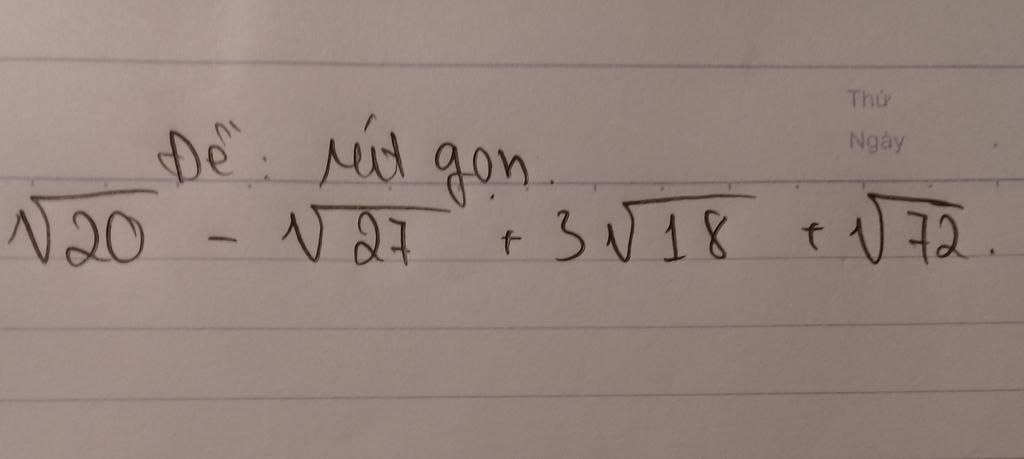 Thứ
Ngày
Đề: rút gọn.
√20 - √27 + 3√18 + √72.